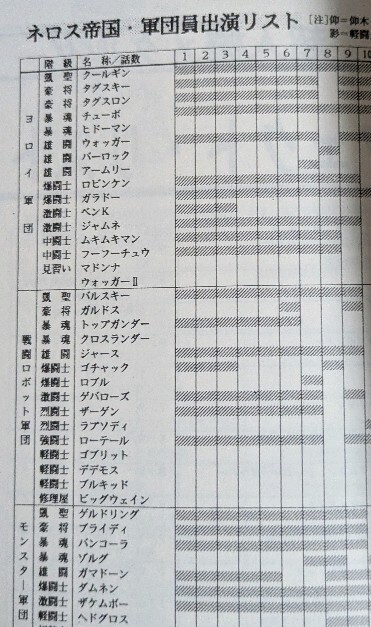 ネロス帝国・軍団員出演リスト [注]仰=仰木
影=軽闘
階級 名称/話数 1 2 3 4 5 6 7 8 9 10
ヨロイ軍団
凱聖 クールギン
豪将 タグスキー
豪将 タグスロン
暴魂 チューボ
暴魂 ヒドーマン
雄闘 ウォッガー
雄闘 バーロック
雄闘 アームリー
爆闘士 ロビンケン
爆闘士 ガラドー
激闘士 ベンK
激闘士 ジャムネ
中闘士 ムキムキマン
中闘士 フーフーチュウ
見習い マドンナ
ウォッガーⅡ
戦闘ロボット軍団
凱聖 バルスキー
豪将 ガルドス
暴魂 トップガンダー
暴魂 クロスランダー
雄闘 ジャース
爆闘士 ゴチャック
爆闘士 ロブル
激闘士 ゲバローズ
烈闘士 ザーゲン
烈闘士 ラプソディ
強闘士 ローテール
軽闘士 ゴブリット
軽闘士 デデモス
軽闘士 ブルキッド
修理屋 ビッグウェイン
モンスター軍団
凱聖 ゲルドリング
豪将 ブライディ
暴魂 バンコーラ
暴魂 ゾルグ
雄闘 ガマドーン
爆闘士 ダムネン
激闘士 ザケムボー
軽闘士 ヘドグロス